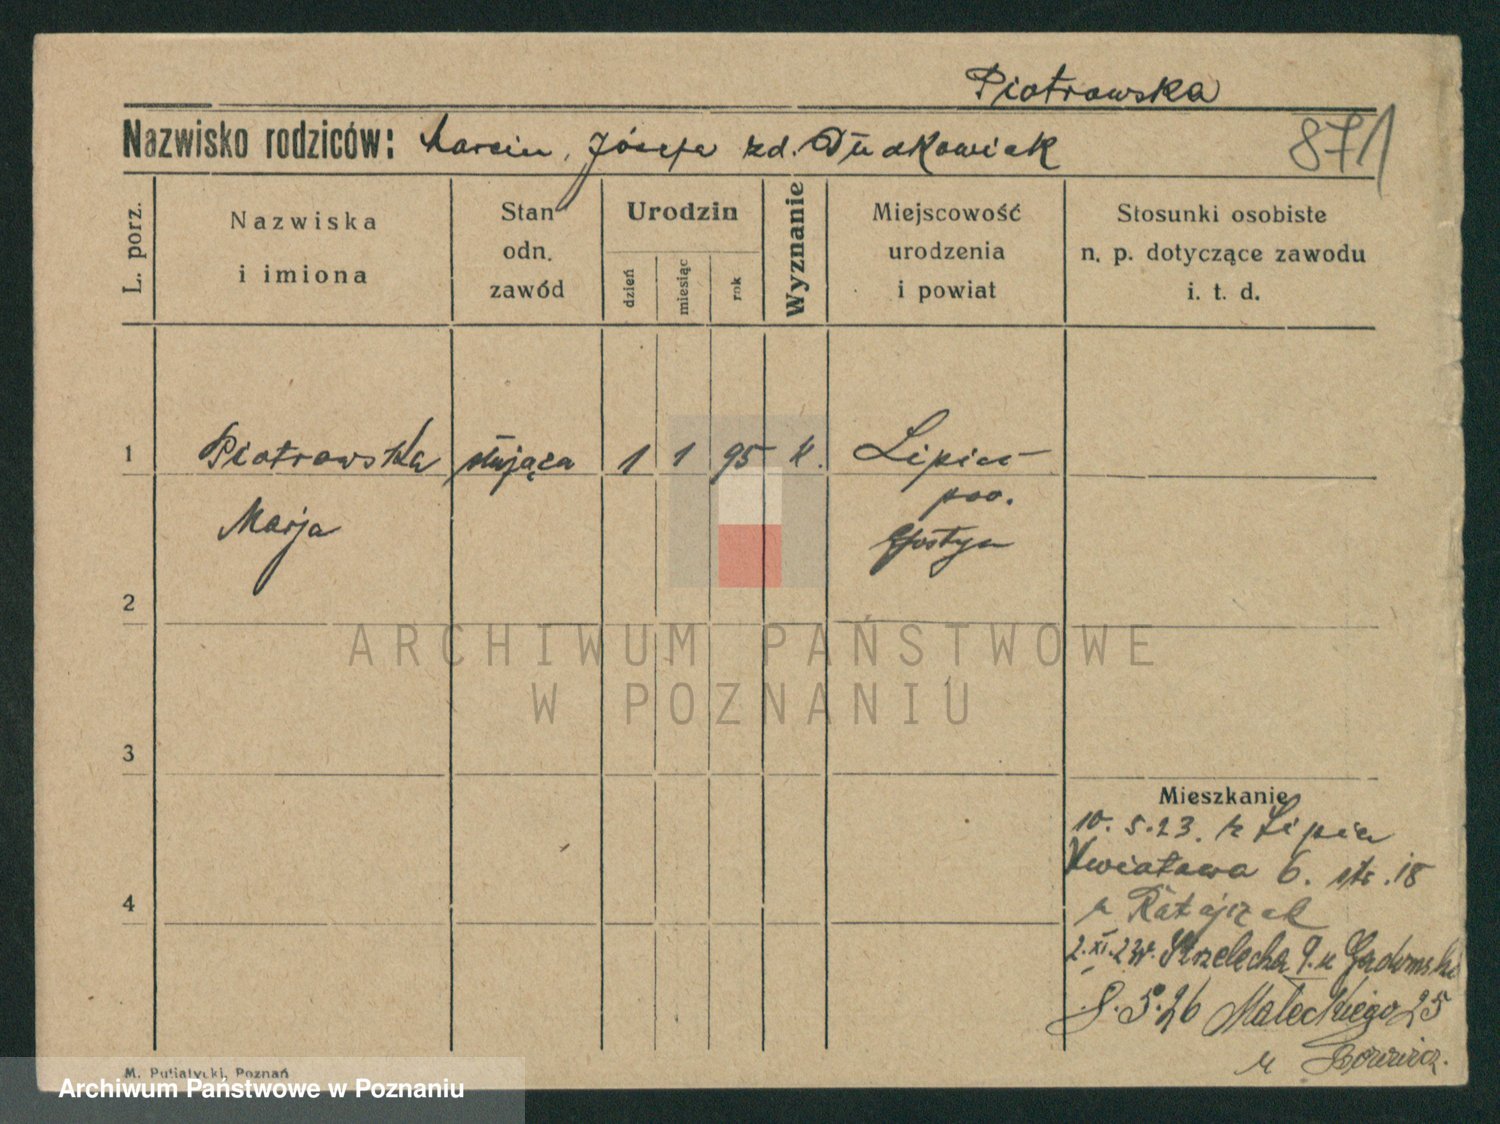 Piotrowska
Nazwisko rodziców: Marcin, Józefa zd. Dudkowiak
871
L. porz.
Nazwiska
i imiona
Stan
odn.
zawód
Urodzin
dzień
miesiąc
rok
Wyznanie
Miejscowość
urodzenia
i powiat
Stosunki osobiste
n. p. dotyczące zawodu
i. t. d.
1
Piotrowska służąca 1 1 95 k. Lipie
pow.
Marja
Gostyn
2
ARCHIWUM PAŃSTWOWE
W POZNANIU
3
Mieszkanie
10. 5. 23. z Lipia
Kwiatowa 6. 18
u Ratajczak
4
2. XI. 23 Strzelecka 9. u Gadomski
8. 5. 26 Małeckiego 25
u
M. Putiatycki, Poznań
Archiwum Państwowe w Poznaniu